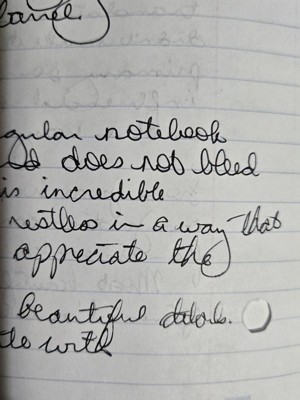 gular notebook
does not bleed
is incredible
restless in a way that
appreciate the
beautiful details.
te with